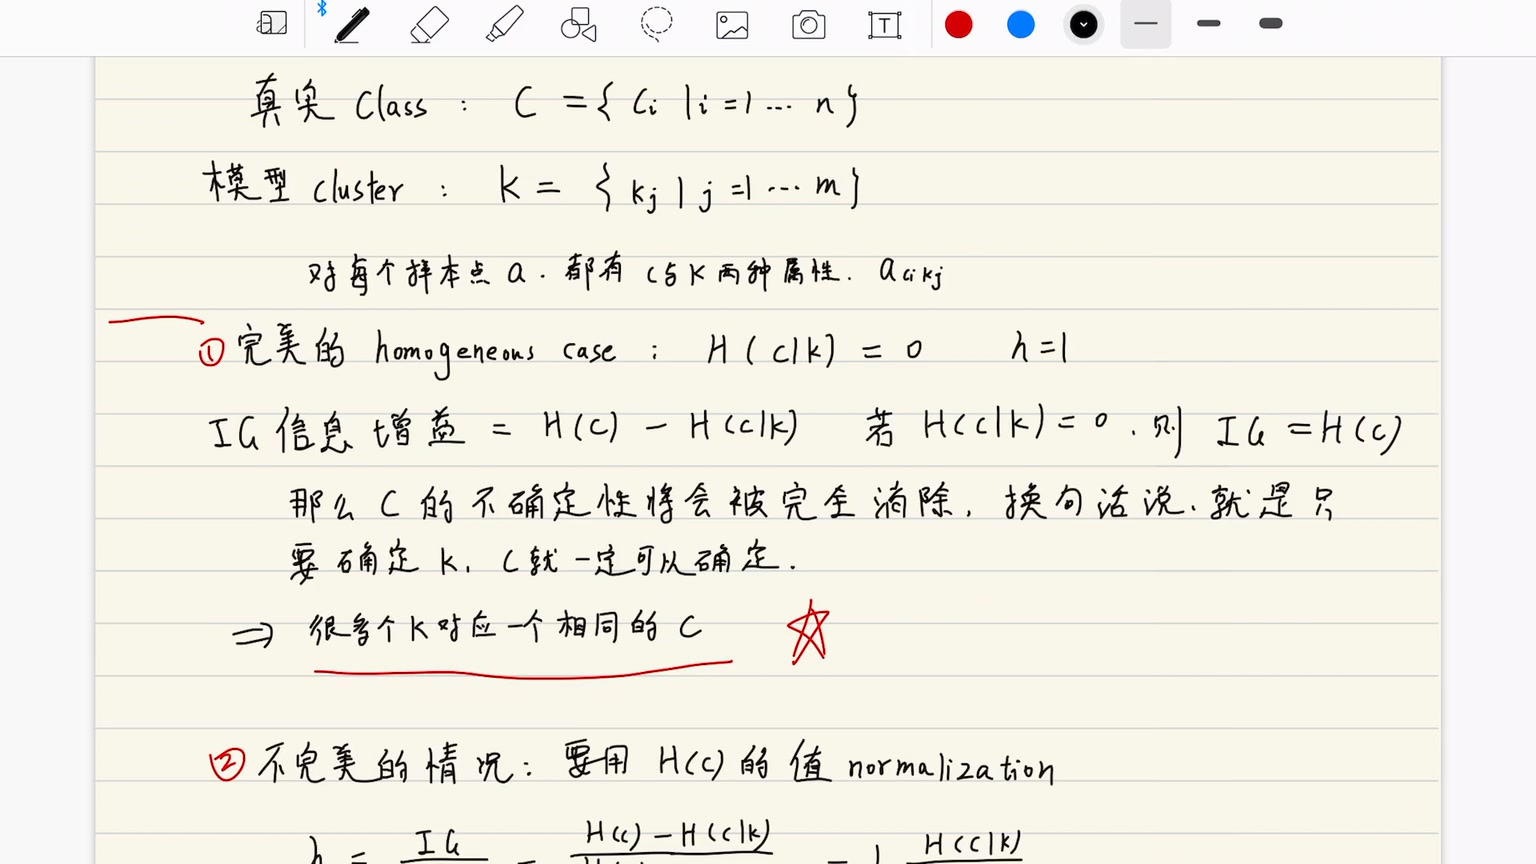 真实 Class : C = { Ci | i = 1 ... n }
模型 cluster : K = { kj | j = 1 ... m }
对每个样本点 a. 都有 C与K 两种属性. a ci kj
① 完美的 homogeneous case : H(C|K) = 0 h=1
IG 信息增益 = H(C) - H(C|K) 若 H(C|K) = 0 . 则 IG = H(C)
那么 C 的不确定性将会被完全消除, 换句话说, 就是只
要确定 K, C就一定可以确定.
⇒ 很多个K对应一个相同的 C
② 不完美的情况: 要用 H(C) 的值 normalization
h = IG = H(C) - H(C|K) = 1 H(C|K)